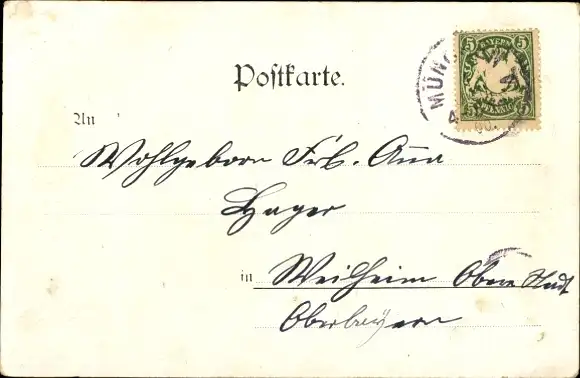 Postkarte.
BAYERN
5 5
PFENNIG
MÜN
An
Wohlgeborn Frl. Anna
Hager
in Weilheim Obere Stadt
Oberbayern